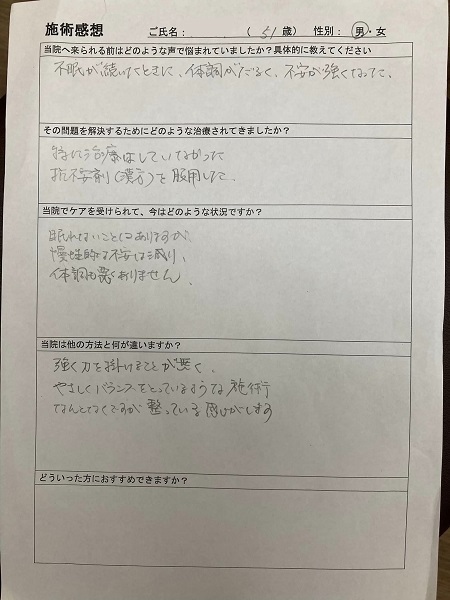 施術感想 ご氏名： （ 51 歳） 性別：男・女
当院へ来られる前はどのような声で悩まれていましたか？具体的に教えてください
不眠が続いたときに、体調がだるく、不安が強くなってた、
その問題を解決するためにどのような治療されてきましたか？
特に治療はしていなかった
抗不安剤（漢方）を服用した。
当院でケアを受けられて、今はどのような状況ですか？
眠れないことはありますが
慢性的な不安は減り、
体調も悪くありません。
当院は他の方法と何が違いますか？
強く力を掛けることが無く、
やさしくバランスをとっているような施術
なんとなくですが整っている感じがします
どういった方におすすめできますか？